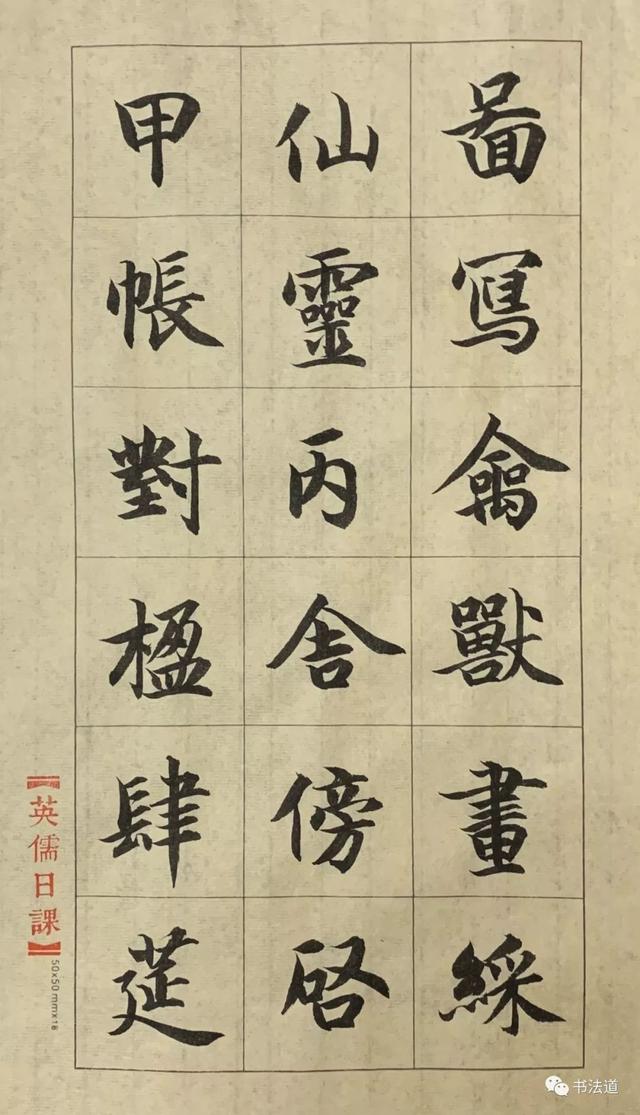 圖寫禽獸畫綵
仙靈丙舍傍啓
甲帳對楹肆莚
【英儒日課】
50x50mmx18
书法道